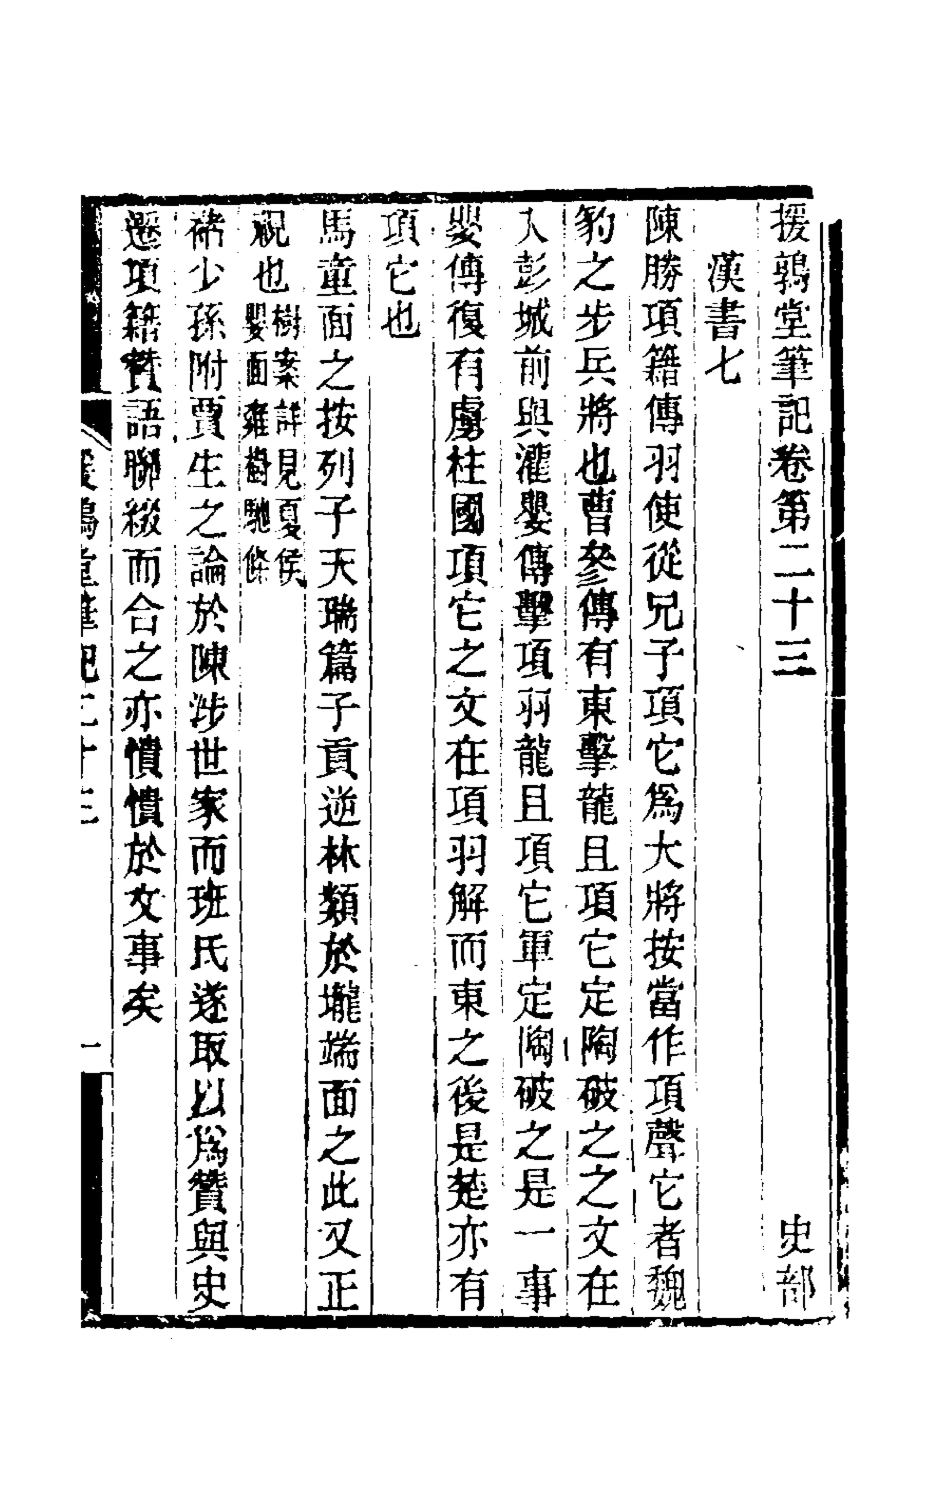 援鶉堂筆記卷第二十三　史部
漢書七
陳勝項籍傳羽使從兄子項它爲大將按當作項聲它者魏
豹之步兵將也曹參傳有東擊龍且項它定陶破之之文在
入彭城前與灌嬰傳擊項羽龍且項它軍定陶破之是一事
嬰傳復有虜柱國項它之文在項羽解而東之後是楚亦有
項它也
馬童面之按列子天瑞篇子貢逆林類於壠端面之此又正
視也樹案詳見夏侯
嬰面雍樹馳條
褚少孫附賈生之論於陳涉世家而班氏遂取以爲贊與史
遷項籍贊語聯綴而合之亦憒憒於文事矣
援鶉堂筆記二十三　一